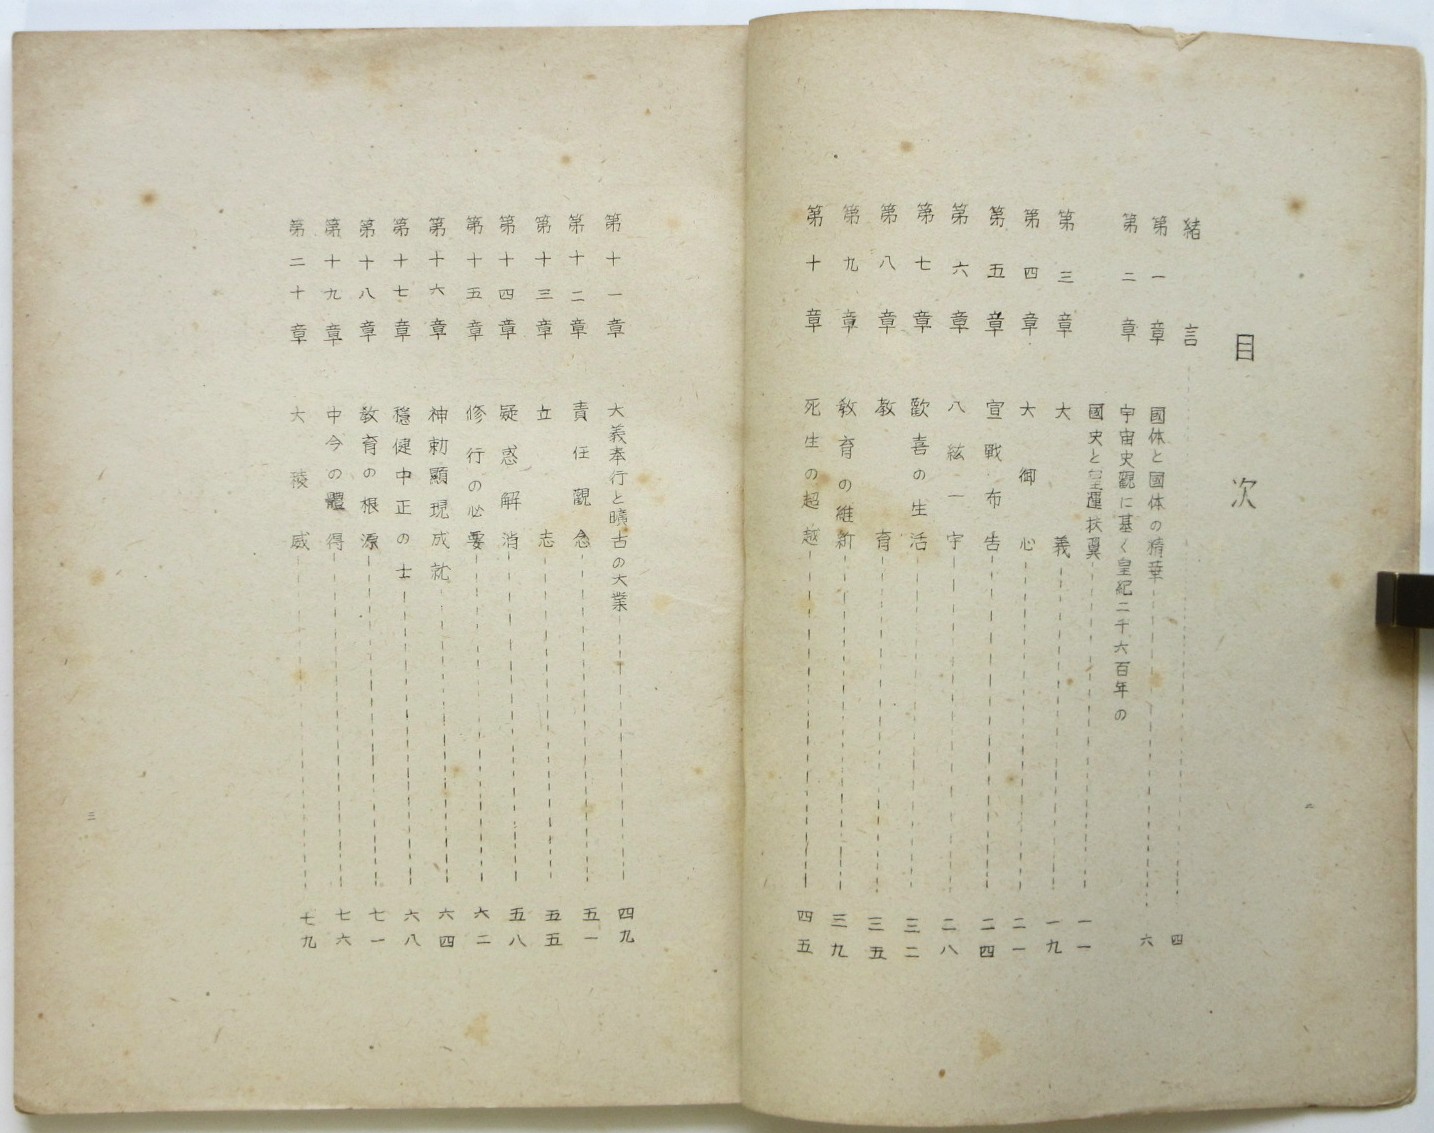 目次
緒言 四
第一章 國体と國体の精華 六
第二章 宇宙史觀に基く皇紀二千六百年の
國史と皇運扶翼 一一
第三章 大義 一九
第四章 大御心 二一
第五章 宣戰布告 二四
第六章 八紘一宇 二八
第七章 歡喜の生活 三二
第八章 教育 三五
第九章 教育の維新 三九
第十章 死生の超越 四五
二
第十一章 大義奉行と曠古の大業 四九
第十二章 責任觀念 五一
第十三章 立志 五五
第十四章 疑惑解消 五八
第十五章 修行の必要 六二
第十六章 神勅顯現成就 六四
第十七章 穏健中正の士 六八
第十八章 教育の根源 七一
第十九章 中今の體得 七六
第二十章 大稜威 七九
三